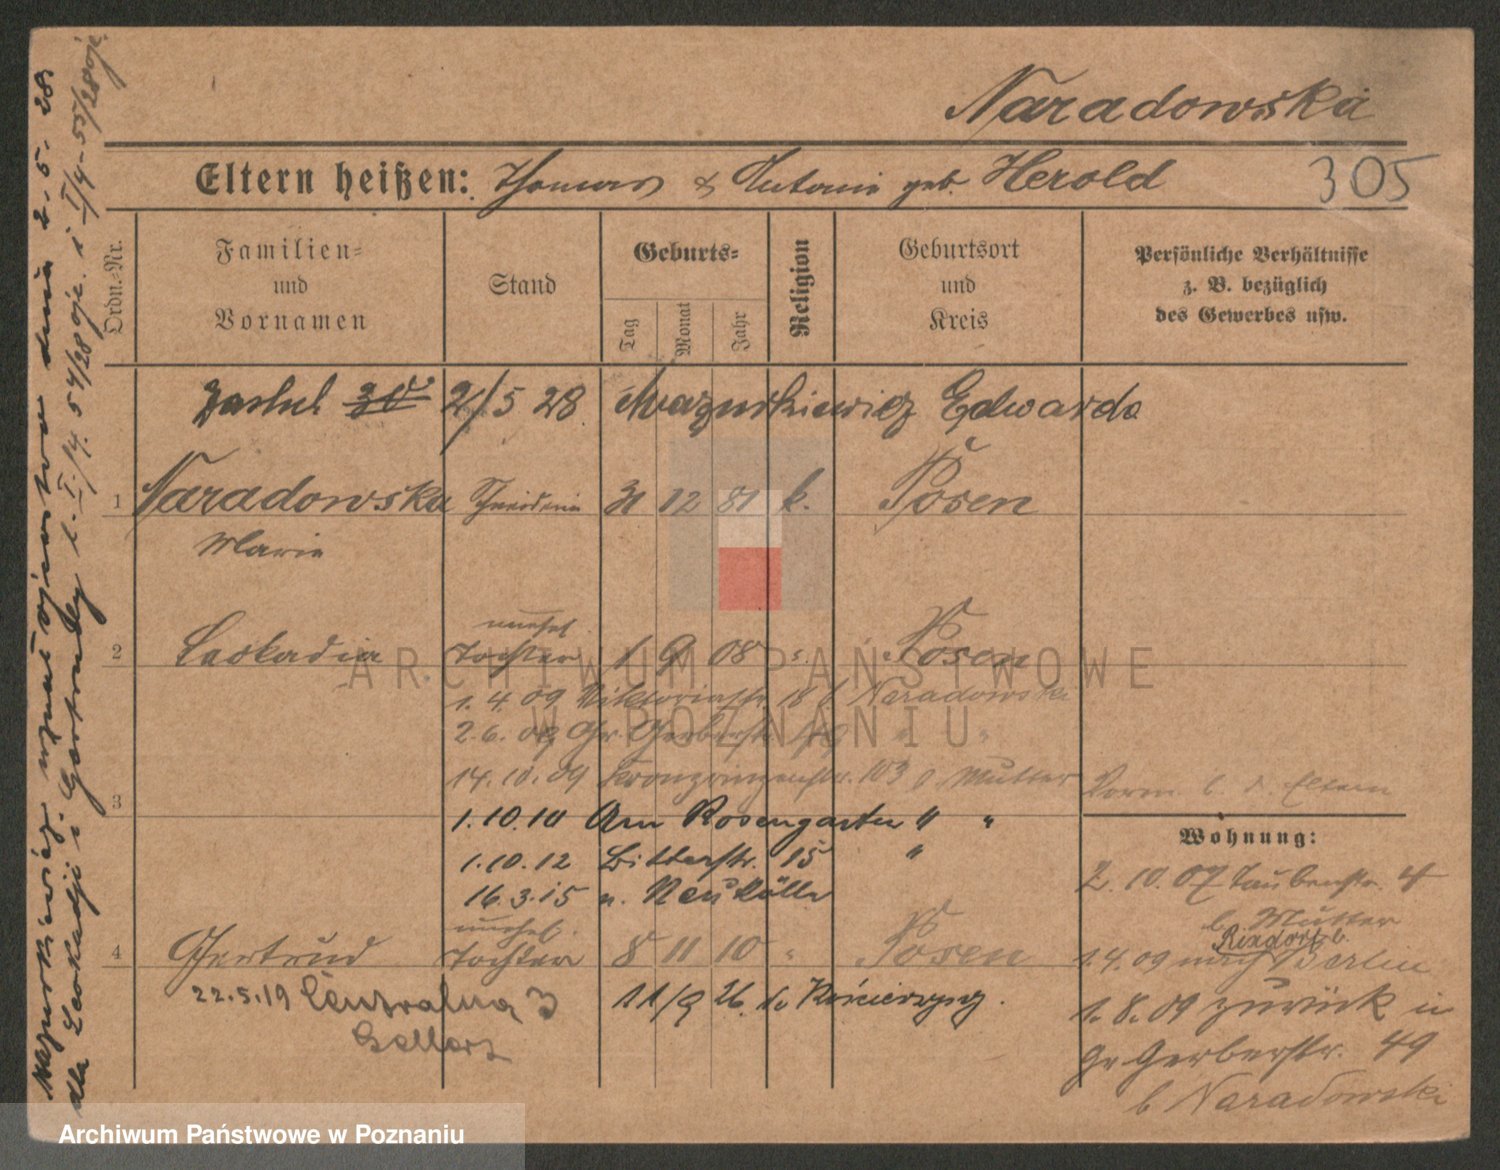 Naradowska
Eltern heißen: Thomas & Antonie geb. Herold
305
Ordn.-Nr.
Familien- und Vornamen
Stand
Geburts-
Tag
Monat
Jahr
Religion
Geburtsort und Kreis
Persönliche Verhältnisse z. B. bezüglich des Gewerbes usw.
2/5 28 Mazurkiewicz Edwarda
1 Naradowska 31 12 81 k. Posen
Marie
unehel.
2 Leokadia Tochter 1 9 08 Posen
1.4.09 Viktoriastr. 18 b Naradowski
2.6.09 Gr. Gerberstr.
14.10.09 Kronprinzenstr. 103 b. Mutter
Vorm. b. d. Eltern
3
1.10.10 Am Rosengarten " "
Wohnung:
1.10.12 Bitterstr. 15 "
2.10.07 Taubenstr. 4
16.3.15 n. Neukölln
b. Mutter
unehel.
Rixdorf b.
4 Gertrud Tochter 8 11 10 " Posen
1.4.09 nach Berlin
22.5.19 Centralna 3
11/9 26. do Kościerzyny.
1.8.09 zurück in
Gr Gerberstr. 49
b Naradowski
Mazurkiewicz uznał ojcostwo dnia 2.5.28
dla Leokadji i Gertrudy I/14. 54/28 oje. i I/14-55/28 oje.
ARCHIWUM PAŃSTWOWE
W POZNANIU
Archiwum Państwowe w Poznaniu